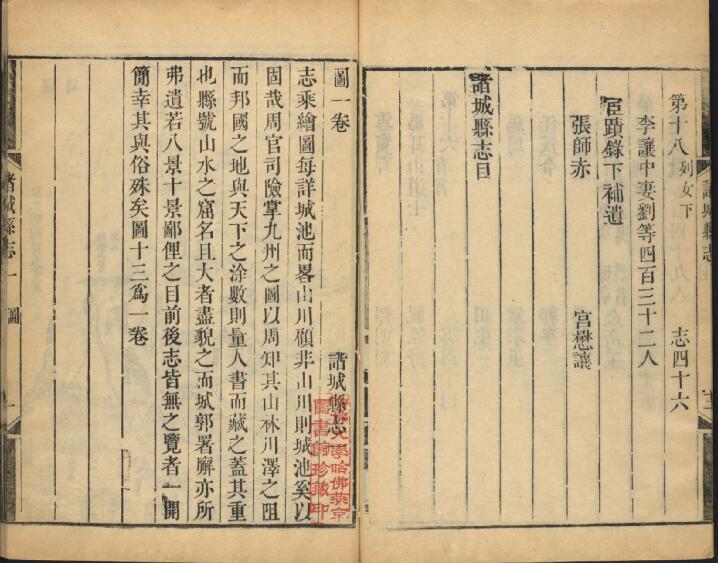 第十八列女下 志四十六
李讓中妻劉等四百三十二人
宦蹟錄下補遺
張師赤 宮懋讓
諸城縣志目
諸城縣志
十二
圖一卷 諸城縣志一
志乘繪圖每詳城池而畧山川顧非山川則城池奚以
固哉周官司險掌九州之圖以周知其山林川澤之阻
而邦國之地與天下之涂數則量人書而藏之蓋其重
也縣號山水之窟名且大者盡貌之而城郭署廨亦所
弗遺若八景十景鄙俚之目前後志皆無之覽者一開
簡幸其與俗殊矣圖十三為一卷
諸城縣志一 圖 一
大學哈佛燕京
圖書館珍藏印